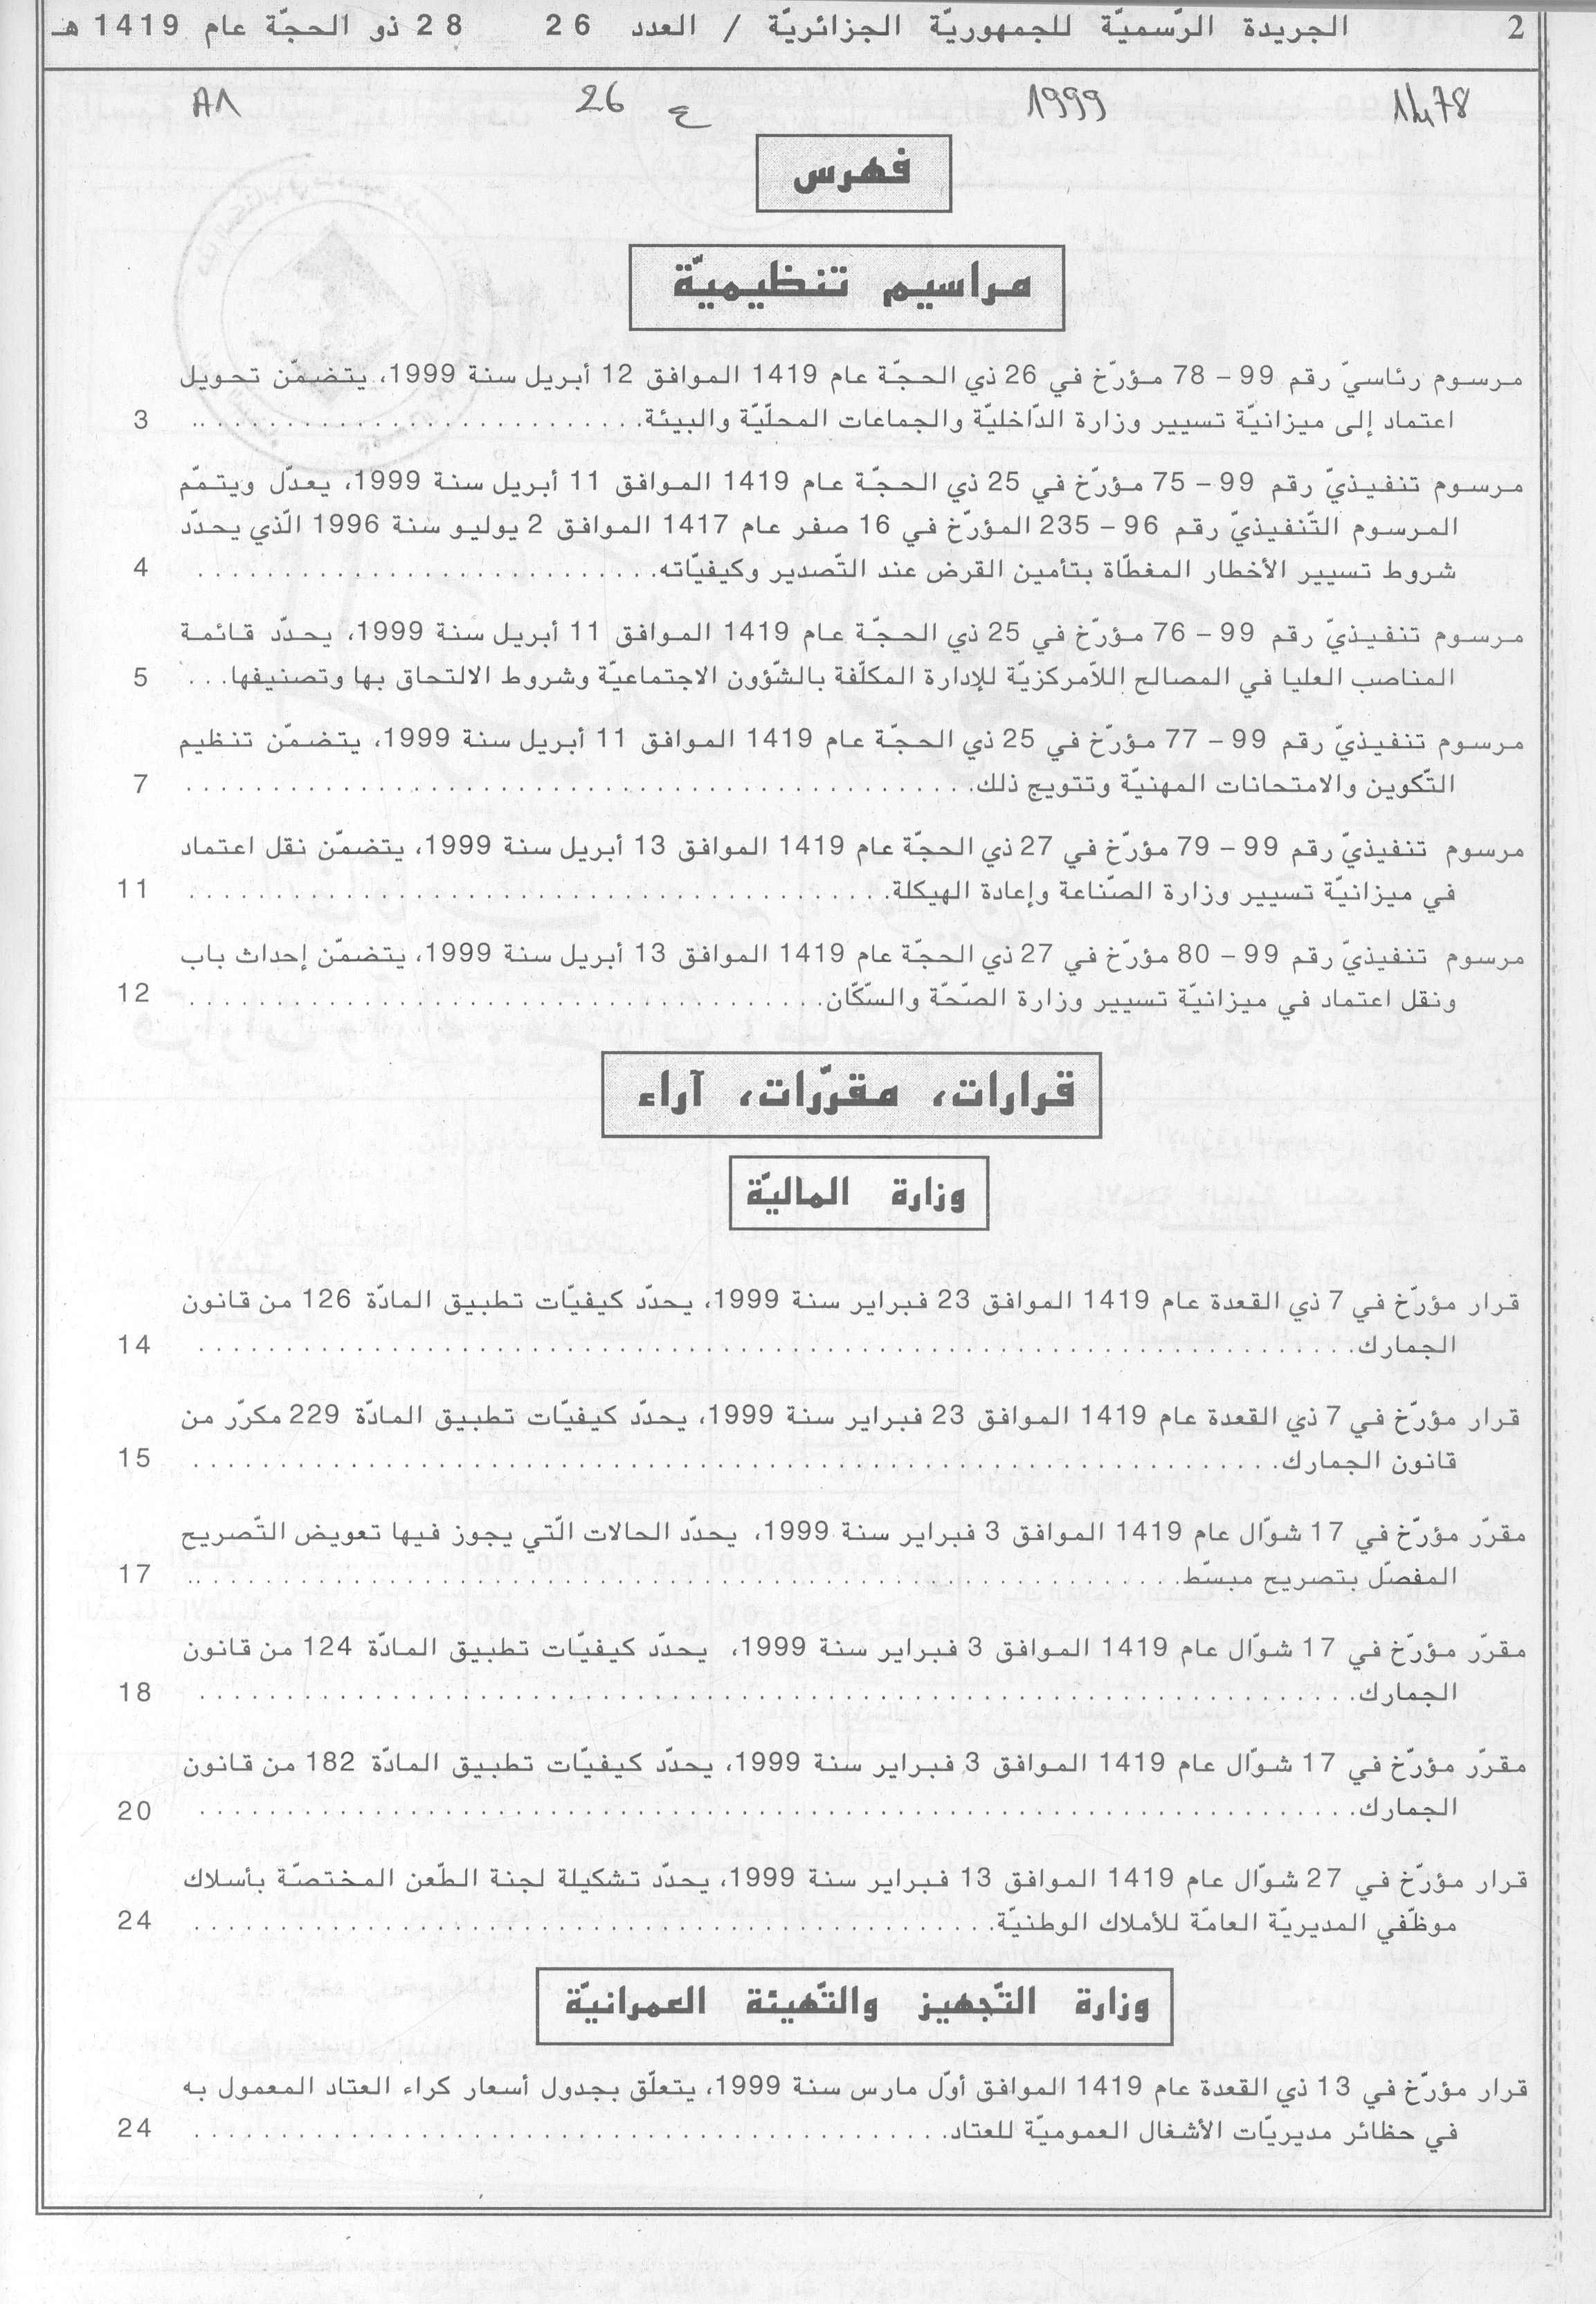 2 الجريدة الرّسميّة للجمهوريّة الجزائريّة / العدد 26 28 ذو الحجّة عام 1419 هـ
1478 1999 ع 26 A1
فهرس
مراسيم تنظيميّة
مرسوم رئاسيّ رقم 99 – 78 مؤرّخ في 26 ذي الحجّة عام 1419 الموافق 12 أبريل سنة 1999، يتضمّن تحويل
اعتماد إلى ميزانيّة تسيير وزارة الدّاخليّة والجماعات المحلّيّة والبيئة. . . . . . . . . . . . . . . . . . . . . . . . . . .. 3
مرسوم تنفيذيّ رقم 99 – 75 مؤرّخ في 25 ذي الحجّة عام 1419 الموافق 11 أبريل سنة 1999، يعدّل ويتمّم
المرسوم التّنفيذيّ رقم 96 – 235 المؤرّخ في 16 صفر عام 1417 الموافق 2 يوليو سنة 1996 الّذي يحدّد
شروط تسيير الأخطار المغطّاة بتأمين القرض عند التّصدير وكيفيّاته. . . . . . . . . . . . . . . . . . . . . . . . . . . 4
مرسوم تنفيذيّ رقم 99 – 76 مؤرّخ في 25 ذي الحجّة عام 1419 الموافق 11 أبريل سنة 1999، يحدّد قائمة
المناصب العليا في المصالح اللاّمركزيّة للإدارة المكلّفة بالشّؤون الاجتماعيّة وشروط الالتحاق بها وتصنيفها. . . 5
مرسوم تنفيذيّ رقم 99 – 77 مؤرّخ في 25 ذي الحجّة عام 1419 الموافق 11 أبريل سنة 1999، يتضمّن تنظيم
التّكوين والامتحانات المهنيّة وتتويج ذلك. . . . . . . . . . . . . . . . . . . . . . . . . . . . . . . . . . . . . . . . 7
مرسوم تنفيذيّ رقم 99 – 79 مؤرّخ في 27 ذي الحجّة عام 1419 الموافق 13 أبريل سنة 1999، يتضمّن نقل اعتماد
في ميزانيّة تسيير وزارة الصّناعة وإعادة الهيكلة. . . . . . . . . . . . . . . . . . . . . . . . . . . . . . . . . . . 11
مرسوم تنفيذيّ رقم 99 – 80 مؤرّخ في 27 ذي الحجّة عام 1419 الموافق 13 أبريل سنة 1999، يتضمّن إحداث باب
ونقل اعتماد في ميزانيّة تسيير وزارة الصّحّة والسّكّان. . . . . . . . . . . . . . . . . . . . . . . . . . . . . . . . 12
قرارات، مقرّرات، آراء
وزارة الماليّة
قرار مؤرّخ في 7 ذي القعدة عام 1419 الموافق 23 فبراير سنة 1999، يحدّد كيفيّات تطبيق المادّة 126 من قانون
الجمارك. . . . . . . . . . . . . . . . . . . . . . . . . . . . . . . . . . . . . . . . . . . . . . . . . . . . . . . . 14
قرار مؤرّخ في 7 ذي القعدة عام 1419 الموافق 23 فبراير سنة 1999، يحدّد كيفيّات تطبيق المادّة 229 مكرّر من
قانون الجمارك. . . . . . . . . . . . . . . . . . . . . . . . . . . . . . . . . . . . . . . . . . . . . . . . . . . . 15
مقرّر مؤرّخ في 17 شوّال عام 1419 الموافق 3 فبراير سنة 1999، يحدّد الحالات الّتي يجوز فيها تعويض التّصريح
المفصّل بتصريح مبسّط. . . . . . . . . . . . . . . . . . . . . . . . . . . . . . . . . . . . . . . . . . . . . . . .. 17
مقرّر مؤرّخ في 17 شوّال عام 1419 الموافق 3 فبراير سنة 1999، يحدّد كيفيّات تطبيق المادّة 124 من قانون
الجمارك. . . . . . . . . . . . . . . . . . . . . . . . . . . . . . . . . . . . . . . . . . . . . . . . . . . . . . . . 18
مقرّر مؤرّخ في 17 شوّال عام 1419 الموافق 3 فبراير سنة 1999، يحدّد كيفيّات تطبيق المادّة 182 من قانون
الجمارك. . . . . . . . . . . . . . . . . . . . . . . . . . . . . . . . . . . . . . . . . . . . . . . . . . . . . . . . 20
قرار مؤرّخ في 27 شوّال عام 1419 الموافق 13 فبراير سنة 1999، يحدّد تشكيلة لجنة الطّعن المختصّة بأسلاك
موظّفي المديريّة العامّة للأملاك الوطنيّة. . . . . . . . . . . . . . . . . . . . . . . . . . . . . . . . . . . . . . . . 24
وزارة التّجهيز والتّهيئة العمرانيّة
قرار مؤرّخ في 13 ذي القعدة عام 1419 الموافق أوّل مارس سنة 1999، يتعلّق بجدول أسعار كراء العتاد المعمول به
في حظائر مديريّات الأشغال العموميّة للعتاد. . . . . . . . . . . . . . . . . . . . . . . . . . . . . . . . . . . . . . 24